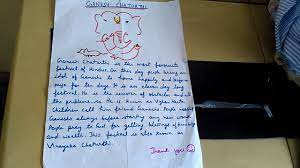 GANESH CHATURTHI
Ganesh Chaturthi is the most favourite
festival of Hindus. On this day people bring an
idol of Ganesha to home happily and
pays for ten days. It is an eleven day long
festival. He is the remover of obstacles and all
the problems so He is known as Vighna Harta.
Children call him friend Ganesha. People worship
Ganesha always before starting any new work.
People pray to God for getting blessings of knowledge
and wealth. This festival is also known as
Vinayaka Chaturthi.
Thank you